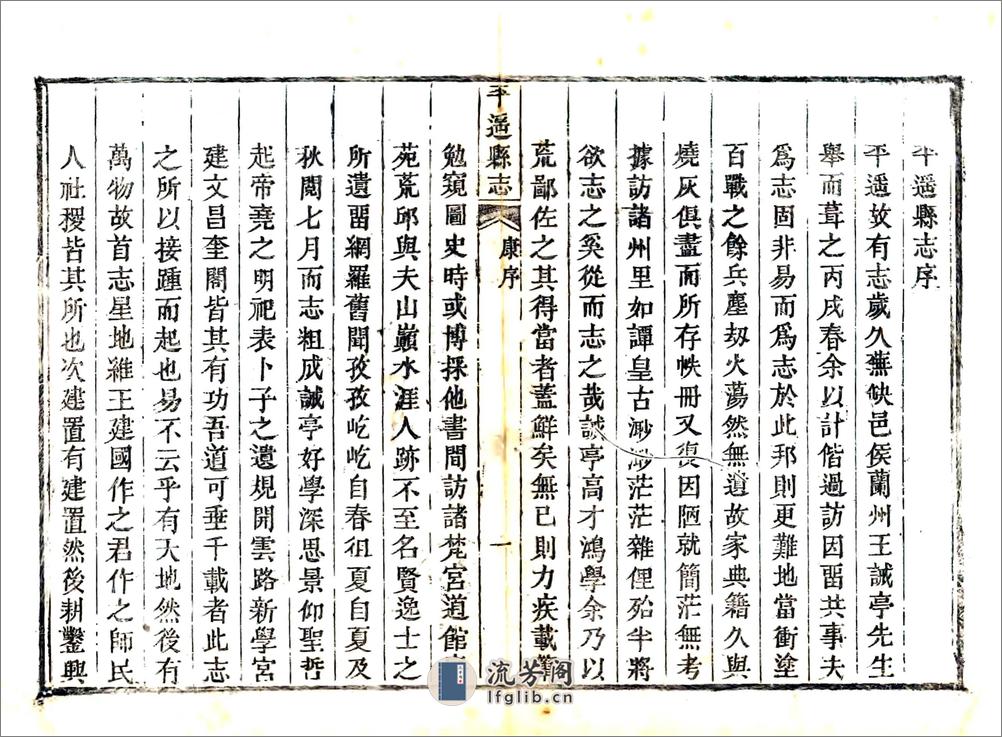 平遥縣志序
平遥故有志歲久蕪缺邑侯蘭州王誠亭先生
舉而葺之丙戌春余以計偕過訪因畱共事夫
爲志固非易而爲志於此邦則更難地當衝塗
百戰之餘兵塵刼火蕩然無遺故家典籍久與
燒灰俱盡而所存帙冊又復因陋就簡茫無考
據訪諸州里如譚皇古渺渺茫茫雜俚殆半將
欲志之奚從而志之哉誠亭高才鴻學余乃以
荒鄙佐之其得當者蓋鮮矣無已則力疾載筆
平遥縣志
康序
一
勉窺圖史時或博採他書間訪諸梵宮道館
苑荒邱與夫山巓水涯人跡不至名賢逸士之
所遺畱網羅舊聞孜孜屹屹自春徂夏自夏及
秋閲七月而志粗成誠亭好學深思景仰聖哲
起帝堯之明祀表卜子之遺規開雲路新學宮
建文昌奎閣皆其有功吾道可垂千載者此志
之所以接踵而起也易不云乎有天地然後有
萬物故首志星地維王建國作之君作之師民
人社稷皆其所也次建置有建置然後耕鑿興
流芳阁
lfglib.cn